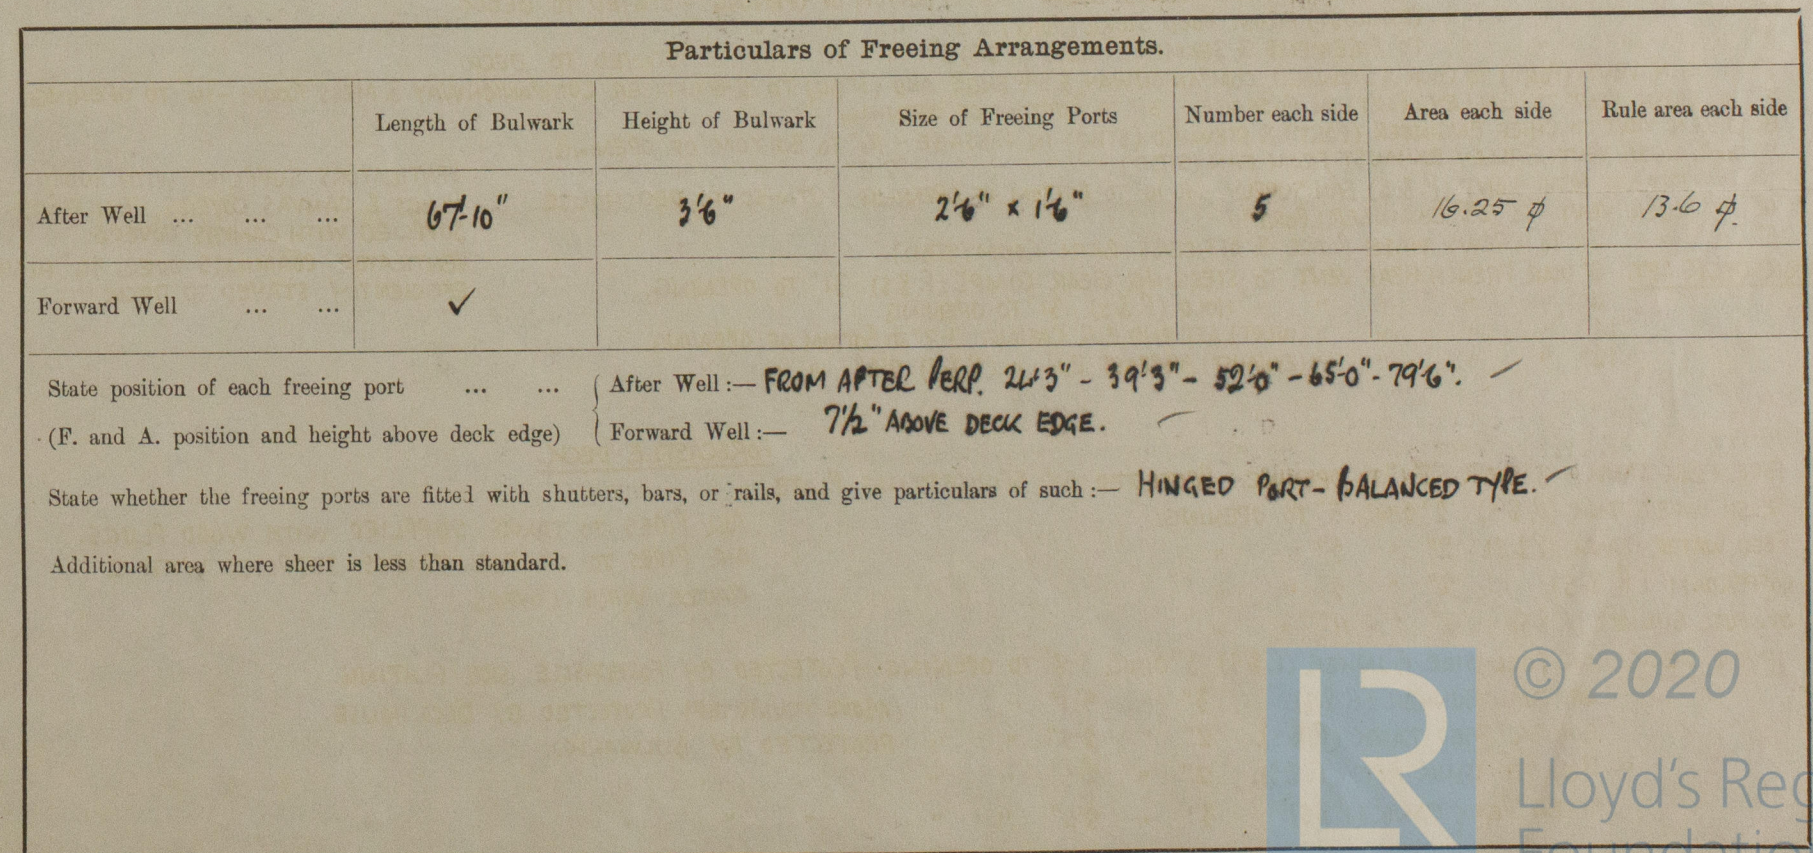 Particulars of Freeing Arrangements.
Length of Bulwark Height of Bulwark Size of Freeing Ports Number each side Area each side Rule area each side
After Well ... ... ... 67'-10" 3'6" 2'6" x 1'6" 5 16.25 ⌀ 13.6 ⌀.
Forward Well ... ... ✓
State position of each freeing port ... ... After Well :— FROM AFTER PERP. 24'3" - 39'3" - 52'0" - 65'0" - 79'6".
(F. and A. position and height above deck edge) Forward Well :— 7½" ABOVE DECK EDGE.
State whether the freeing ports are fitted with shutters, bars, or rails, and give particulars of such :— HINGED PORT - BALANCED TYPE.
Additional area where sheer is less than standard.
LR
© 2020
Lloyd's Reg
Foundation